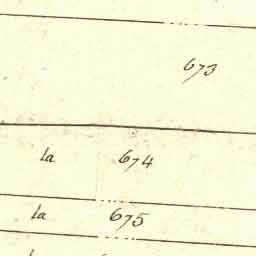 673
la 674
la 675